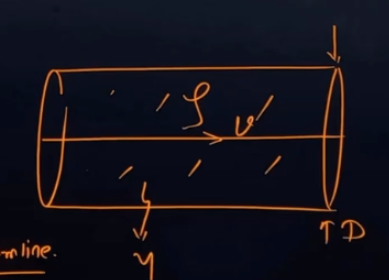 ρ v
D
η
mline.